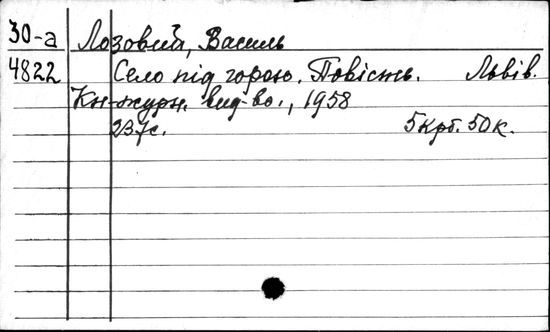 30-а Лозовий, Василь
4822 Село під горою. Повість. Львів.
Кн-журн. вид-во., 1958
237с. 5крб. 50к.